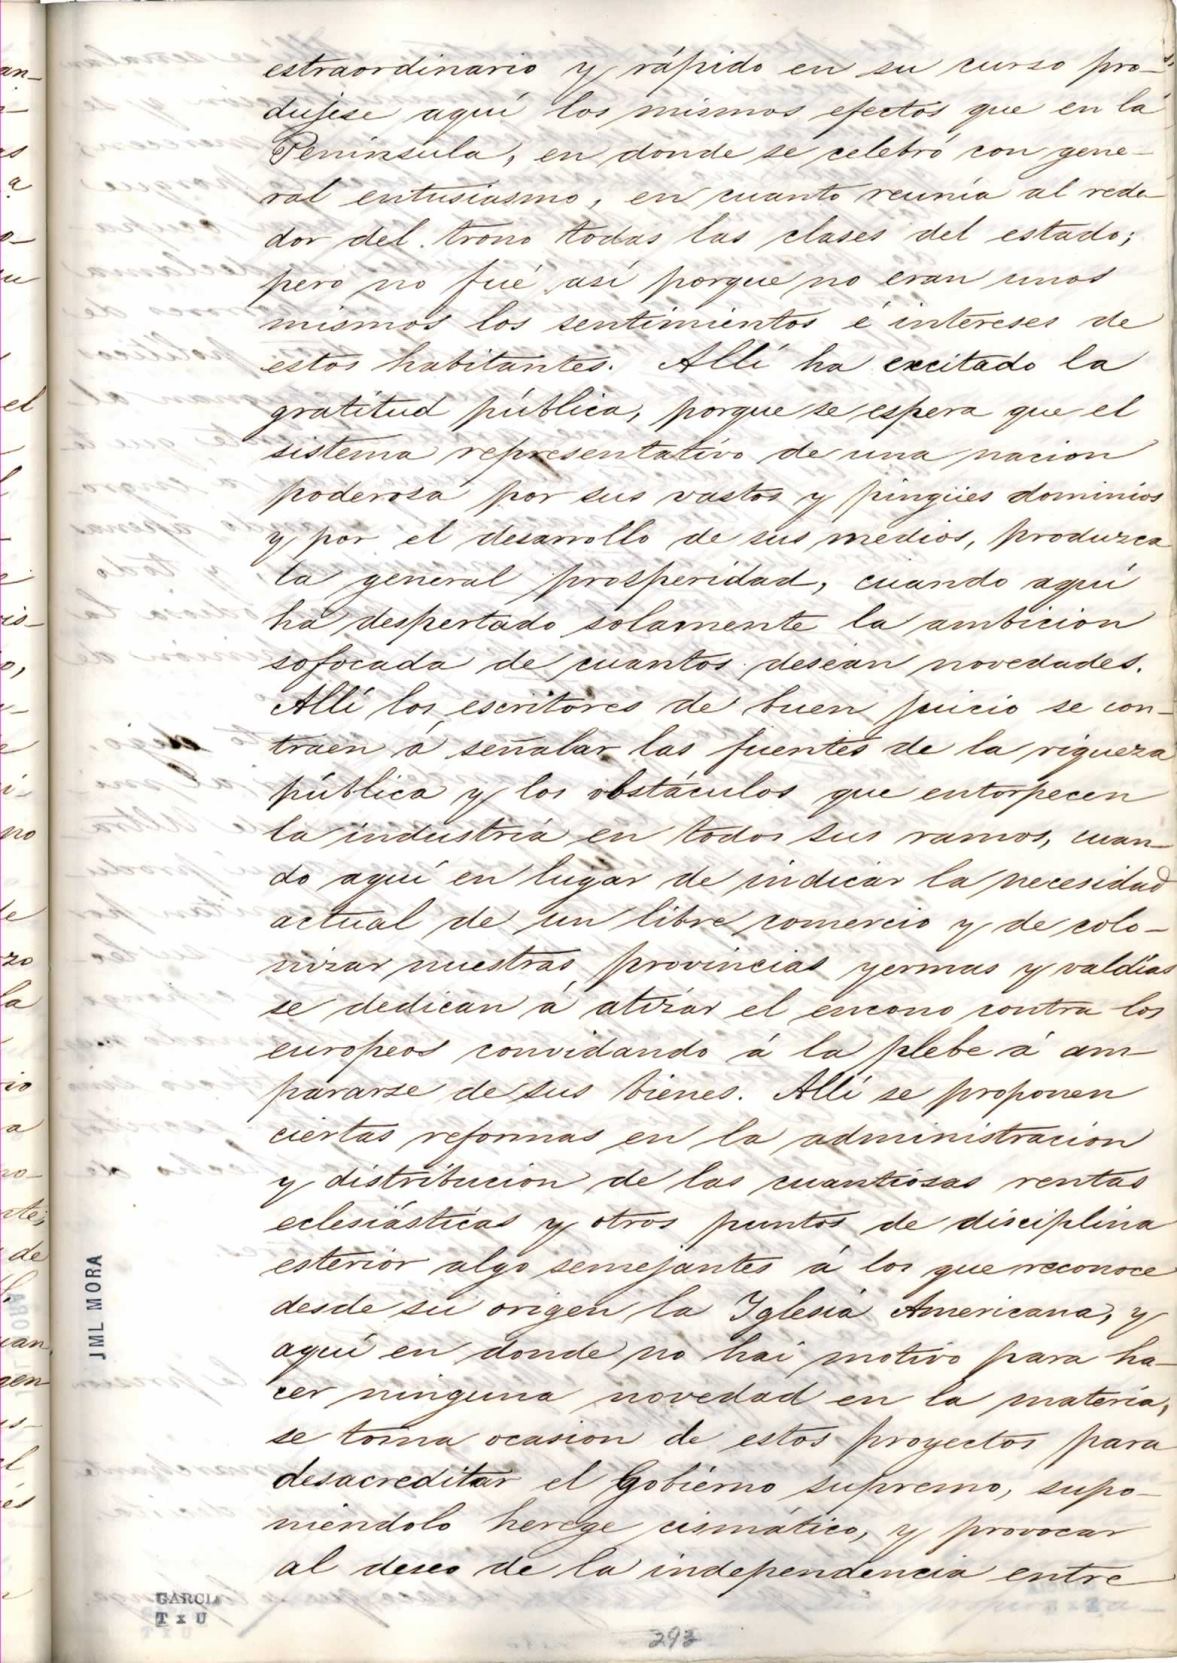 estraordinario y rápido en su curso pro-
dujese aquí los mismos efectos que en la
Península, en donde se celebró con gene-
ral entusiasmo, en cuanto reunía al rede-
dor del trono todas las clases del estado;
pero no fué así porque no eran unos
mismos los sentimientos é intereses de
estos habitantes. Allí ha excitado la
gratitud pública, porque se espera que el
sistema representativo de una nacion
poderosa por sus vastos y pingües dominios
y por el desarrollo de sus medios, produzca
la general prosperidad, cuando aquí
ha despertado solamente la ambicion
sofocada de cuantos desean novedades.
Allí los escritores de buen juicio se con-
traen á señalar las fuentes de la riqueza
pública y los obstáculos que entorpecen
la industria en todos sus ramos, cuan-
do aquí en lugar de indicar la necesidad
actual de un libre comercio y de colo-
nizar nuestras provincias yermas y valdías
se dedican á atizar el encono contra los
europeos convidando á la plebe á am-
pararse de sus bienes. Allí se proponen
ciertas reformas en la administracion
y distribucion de las cuantiosas rentas
eclesiásticas y otros puntos de disciplina
esterior algo semejantes á los que reconoce
desde su origen la Iglesia Americana, y
aquí en donde no hai motivo para ha-
cer ninguna novedad en la materia,
se toma ocasion de estos proyectos para
desacreditar el Gobierno supremo, supo-
niéndolo herege cismático, y provocar
al deseo de la independencia entre
JML MORA
GARCIA
T x U
293